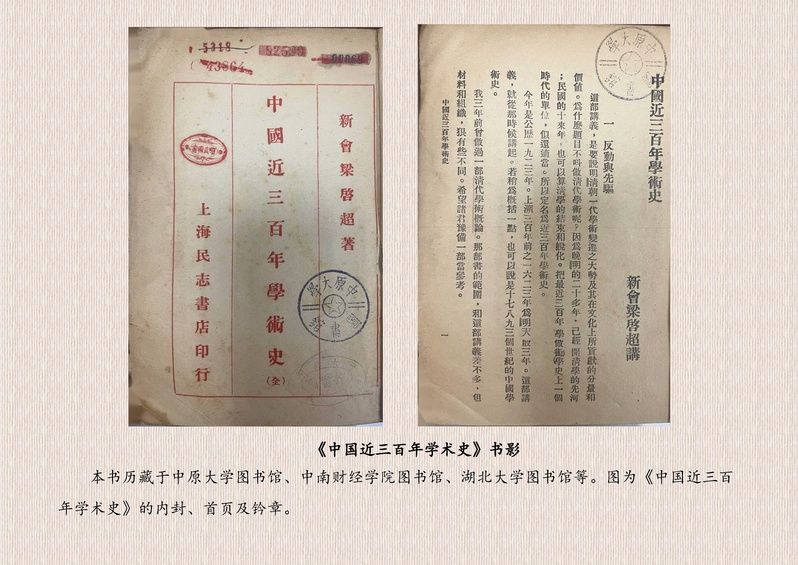 5318
43864
82599
新會梁啓超著
中國近三百年學術史(全)
上海民志書店印行
中原大學
圖書館
中原大學
圖書館
中國近三百年學術史
新會梁啓超講
一 反動與先驅
這部講義,是要說明清朝一代學術變遷之大勢及其在文化上所貢獻的分量和
價値。爲什麼題目不叫做清代學術呢?因爲晚明的二十多年,已經開清學的先河
;民國的十來年,也可以算清學的結束和蛻化。把最近三百年學做學術史上一個
時代的單位,但還適當。所以定名爲近三百年學術史。
今年是公歷一九二三年。上溯三百年前之一六二三年爲明天啟三年。這部講
義,就從那時候講起。若稍爲概括一點,也可以說是十七八九三個世紀的中國學
術史。
我三年前曾做過一部清代學術概論。那部書的範圍,和這部講義差不多,但
材料和組織,狠有些不同。希望諸君豫備一部當參考。
中國近三百年學術史
一
《中国近三百年学术史》书影
本书历藏于中原大学图书馆、中南财经学院图书馆、湖北大学图书馆等。图为《中国近三百
年学术史》的内封、首页及钤章。